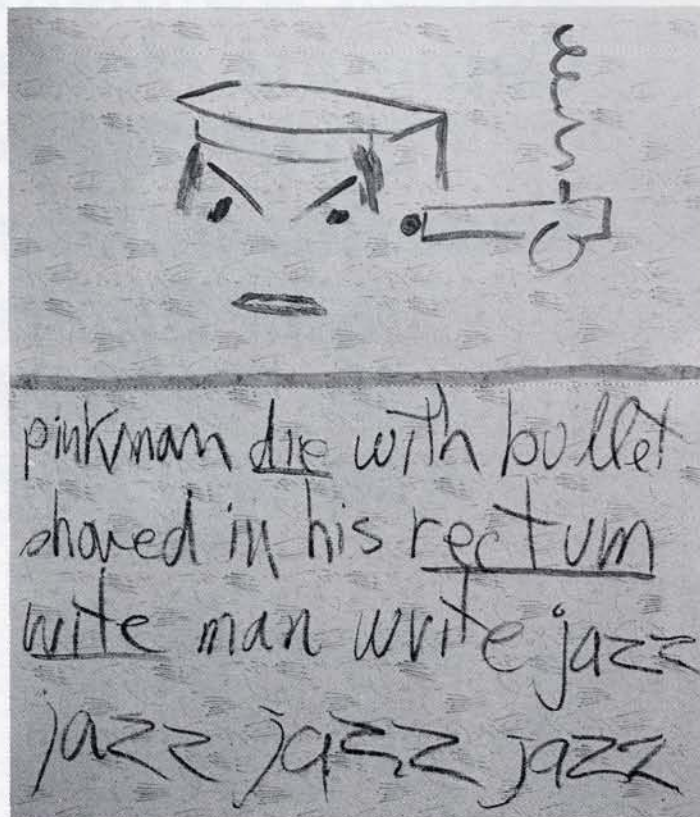 pinkman die with bullet
shoved in his rectum
wite man write jazz
jazz jazz jazz